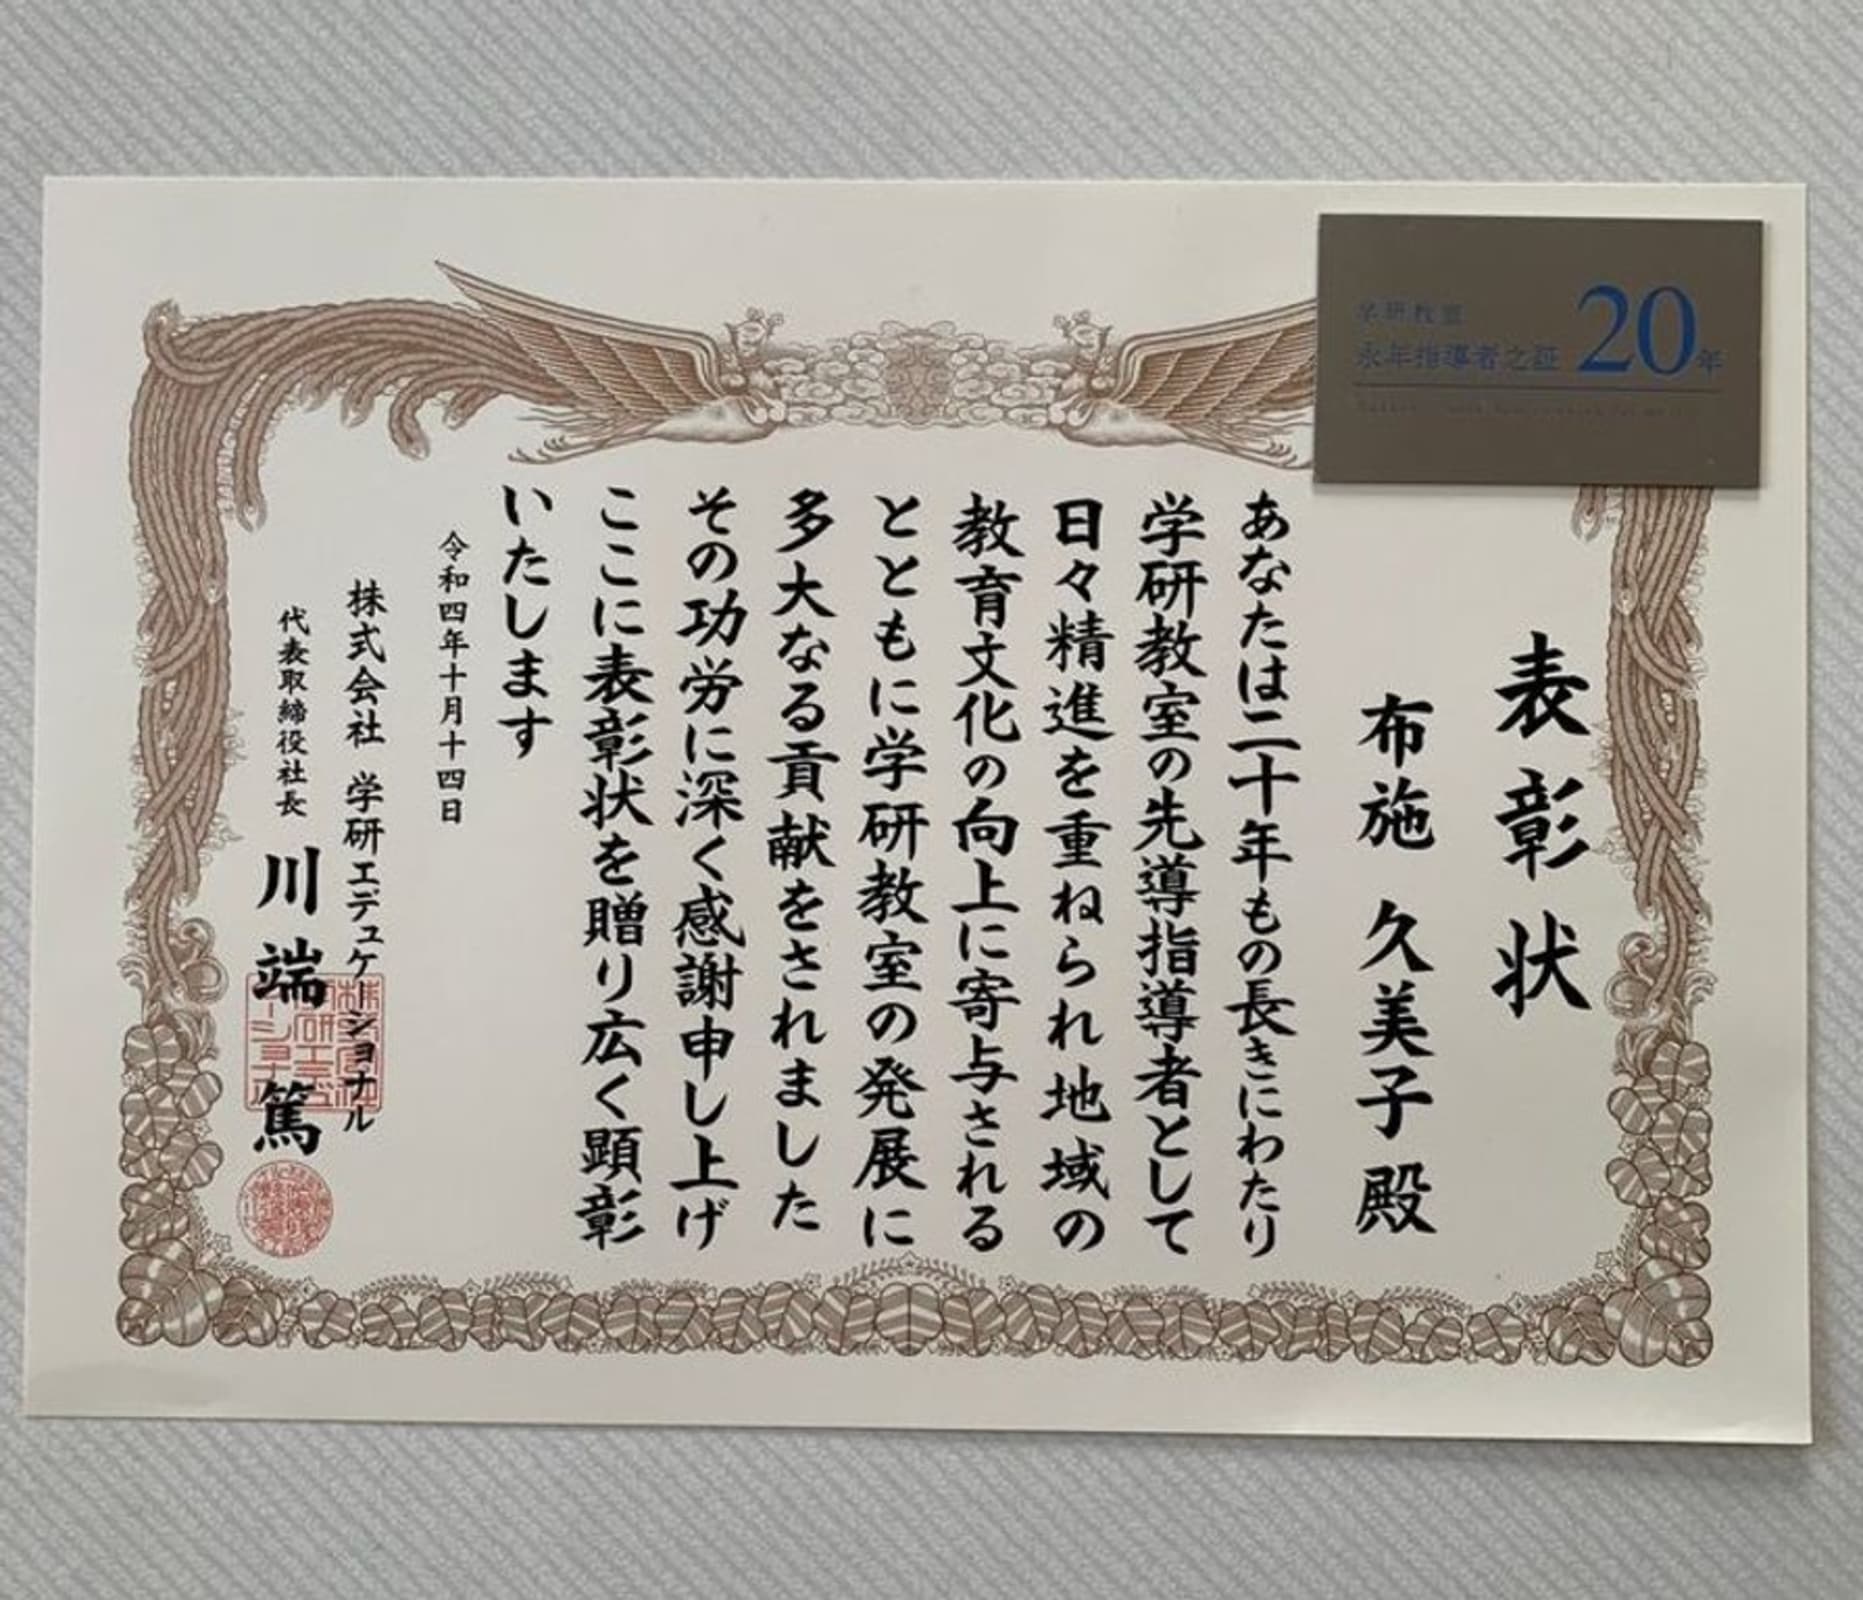 表彰状
布施 久美子 殿
あなたは二十年もの長きにわたり
学研教室の先導指導者として
日々精進を重ねられ地域の
教育文化の向上に寄与される
とともに学研教室の発展に
多大なる貢献をされました
その功労に深く感謝申し上げ
ここに表彰状を贈り広く顕彰
いたします
令和四年十月十四日
株式会社 学研エデュケーショナル
代表取締役社長 川端 篤
学研教室
永年指導者之証 20年